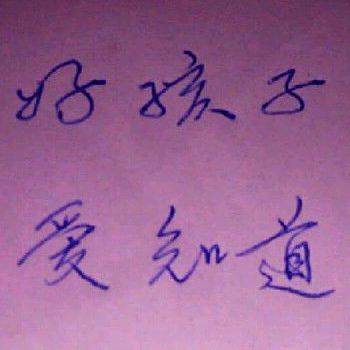 好孩子
爱知道